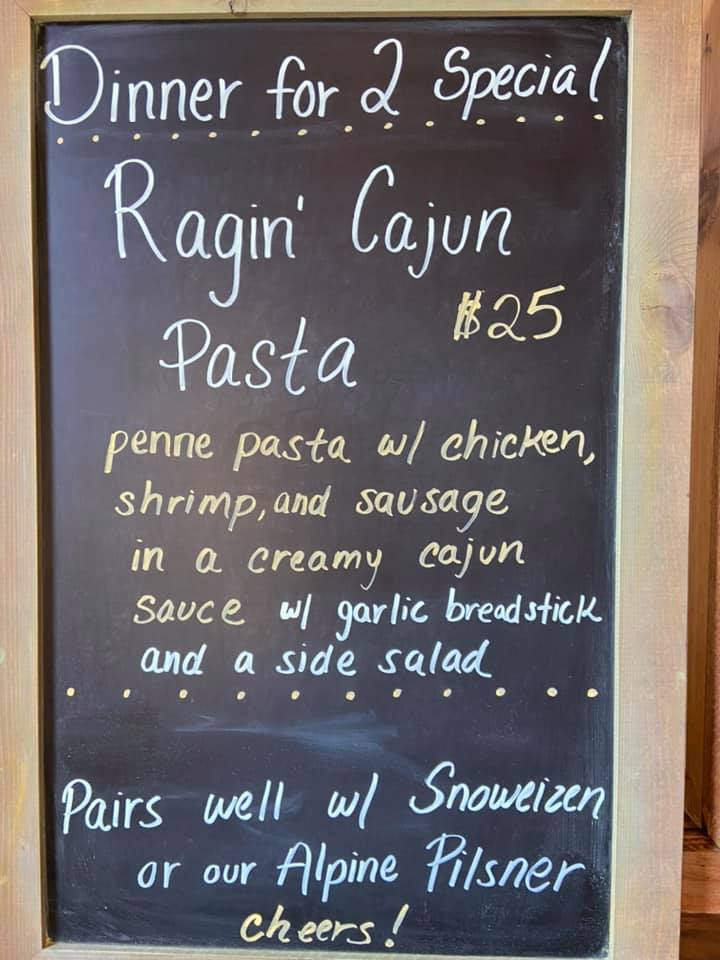 Dinner for 2 Special
Ragin' Cajun
$25
Pasta
penne pasta w/ chicken,
shrimp, and sausage
in a creamy cajun
sauce w/ garlic breadstick
and a side salad
Pairs well w/ Snoweizen
or our Alpine Pilsner
cheers!